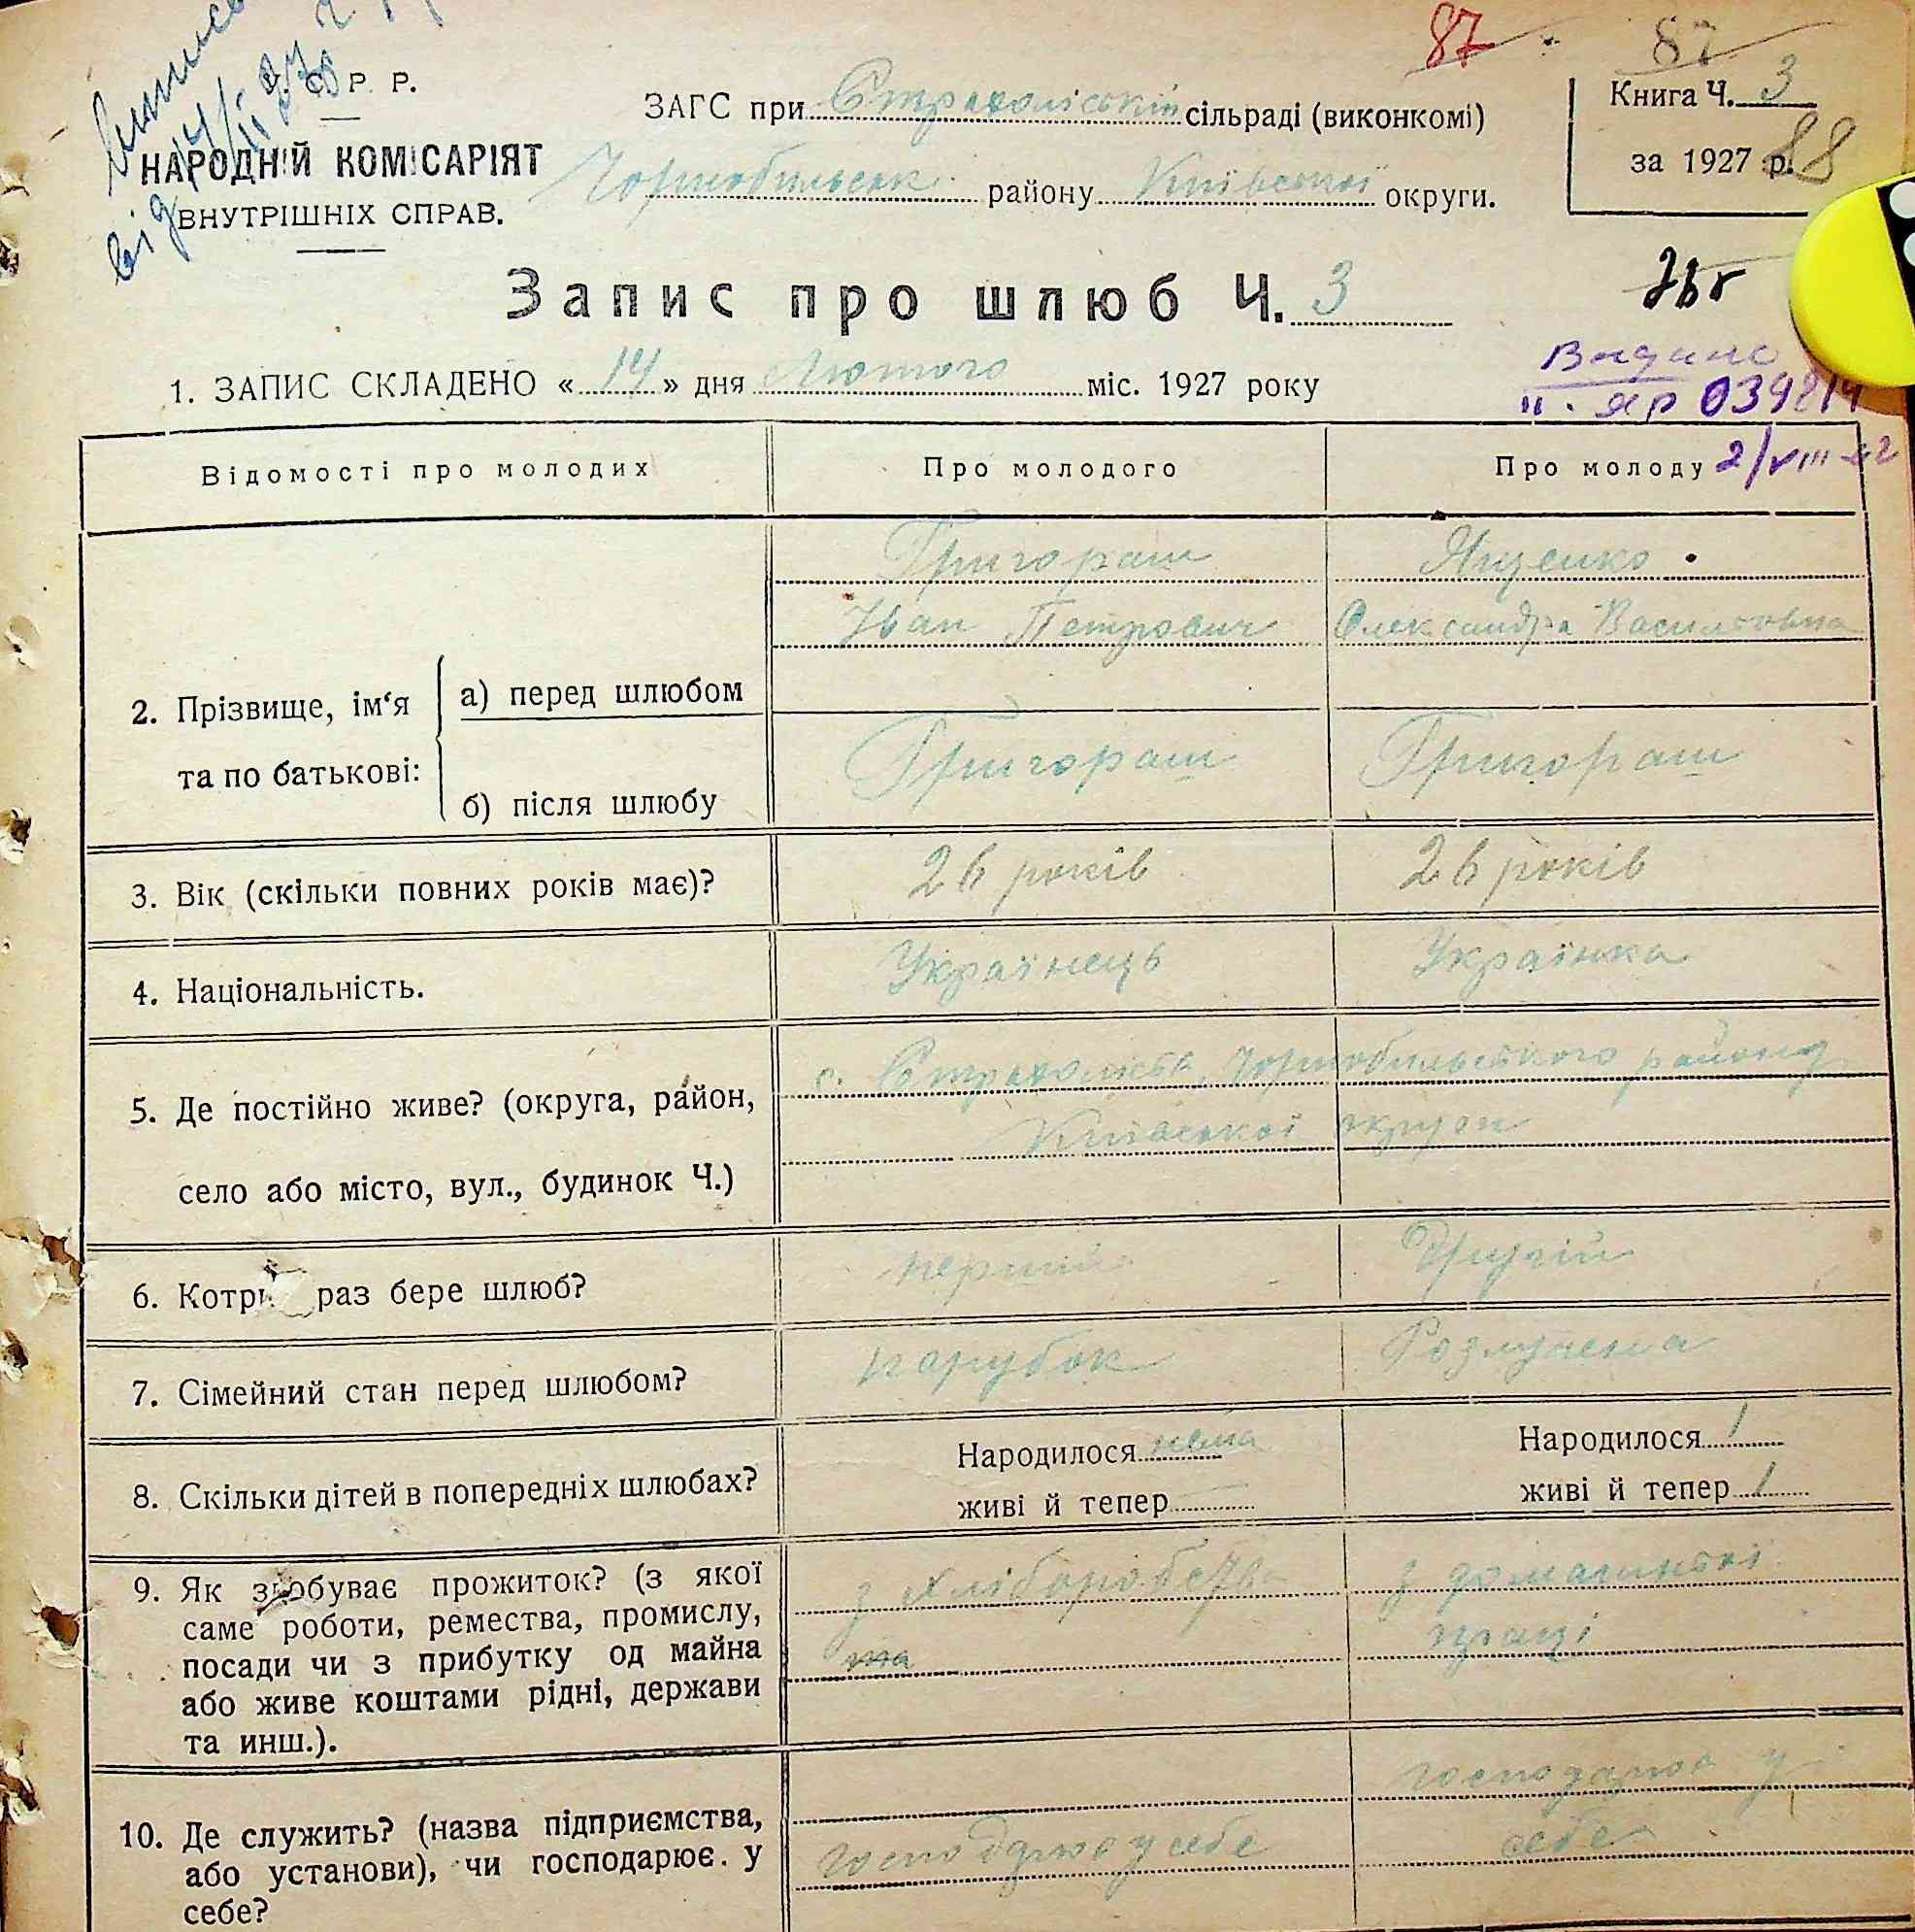 87
87
У. С. Р. Р.
НАРОДНІЙ КОМІСАРІЯТ
ВНУТРІШНІХ СПРАВ.
ЗАГС при Страхоліській сільраді (виконкомі)
Чорнобильськ. району Київської округи.
Книга Ч. 3
за 1927 р.
88
Запис про шлюб Ч. 3
Видано
1. ЗАПИС СКЛАДЕНО « 14 » дня Лютого міс. 1927 року
Відомості про молодих
Про молодого
Про молоду
2. Прізвище, ім‘я та по батькові:
а) перед шлюбом
Григораш
Іван Петрович
Яценко
Олександра Василовна
б) після шлюбу
Григораш
Григораш
3. Вік (скільки повних років має)?
26 років
26 років
4. Національність.
Українець
Українка
5. Де постійно живе? (округа, район,
село або місто, вул., будинок Ч.)
с. Страхолісся, Чорнобильського району
Київської округи
6. Котрий раз бере шлюб?
перший
Другій
7. Сімейний стан перед шлюбом?
парубок
Розлучена
8. Скільки дітей в попередніх шлюбах?
Народилося нема
живі й тепер
Народилося 1
живі й тепер 1
9. Як здобуває прожиток? (з якої
саме роботи, ремества, промислу,
посади чи з прибутку од майна
або живе коштами рідні, держави
та инш.).
з хліборобств
та
з домашньої
праці
10. Де служить? (назва підприємства,
або установи), чи господарює у
себе?
господарює у себе
господарює у
себе